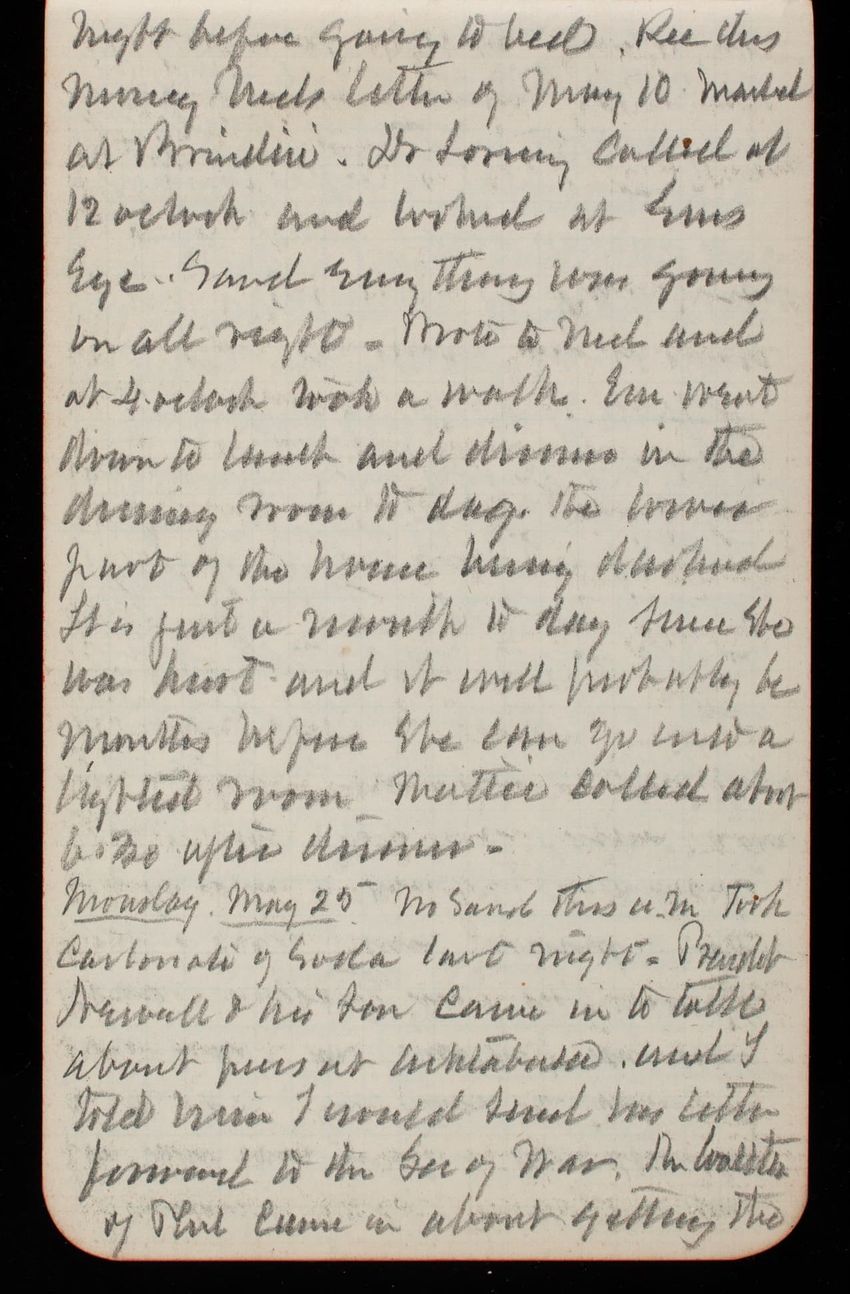 night before going to bed. Rec this
morning Neds letter of May 10 Marked
at Brindisi. Dr Loring called at
12 oclock and looked at Ems
Eye. Said Every thing was going
on all right - Wrote to Ned and
at 4 oclock took a walk. Em went
down to lunch and dinner in the
dining room to day. the lower
part of the house being darkened
It is just a month to day since She
was hurt and it will probably be
months before She can go into a
lighted room Mattie called about
after dinner -
Monday. May 25 No Sand this a.m Took
Carbonate of Soda last night - Presdt
Sewall & his Son Came in to talk
about piers at and I
told him I would send his letter
forward to the Sec of War. Mr
of Phil Came in about getting the